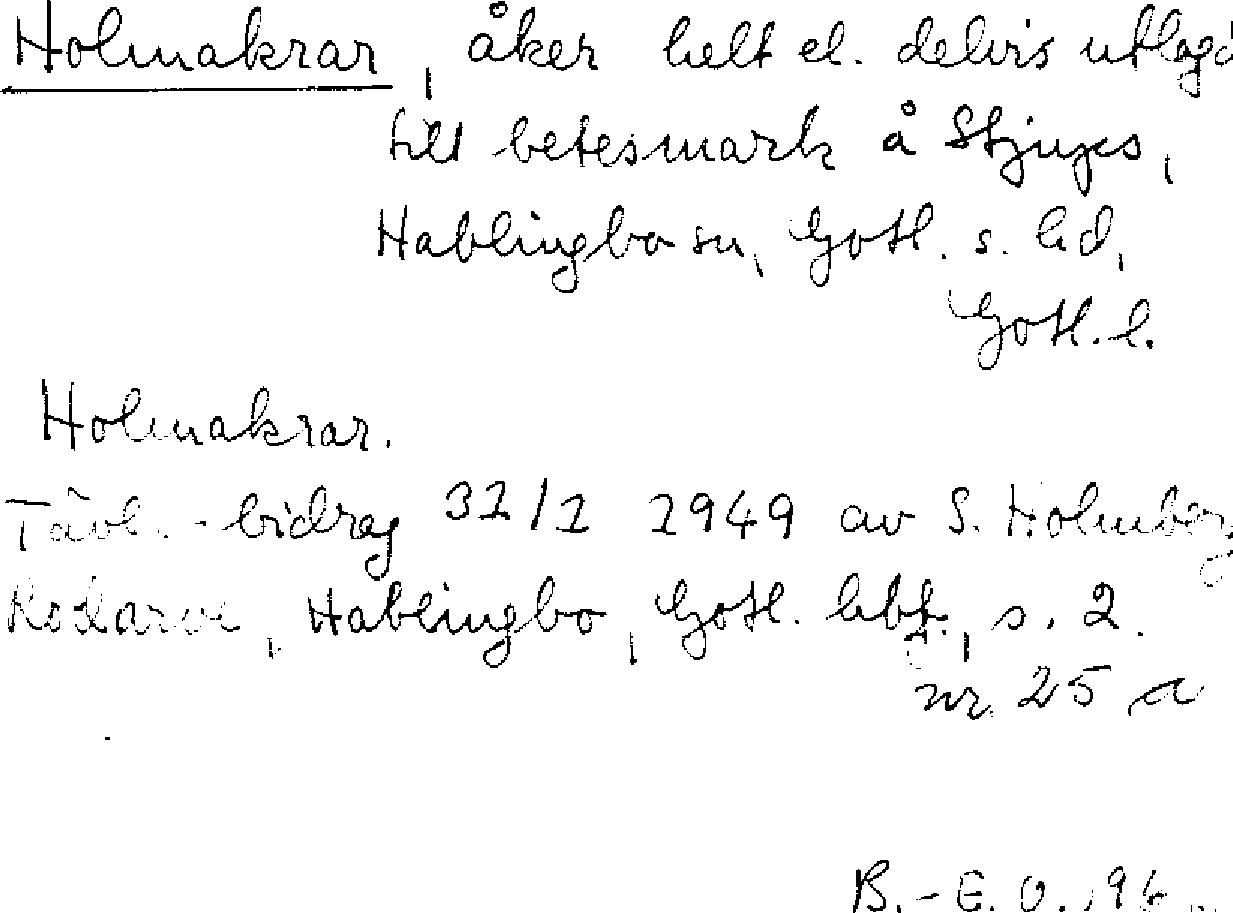 Holmakrar, åker helt el. delvis utlagd
till betesmark å Stjups,
Hablingbo sn, Gotl. s. hd,
Gotl. l.
Holmakrar.
Tävl.-bidrag 31/1 1949 av S. Holmberg
Kodarve, Hablingbo, Gotl. lbf., s. 2.
nr. 25 a
B.-E. O.